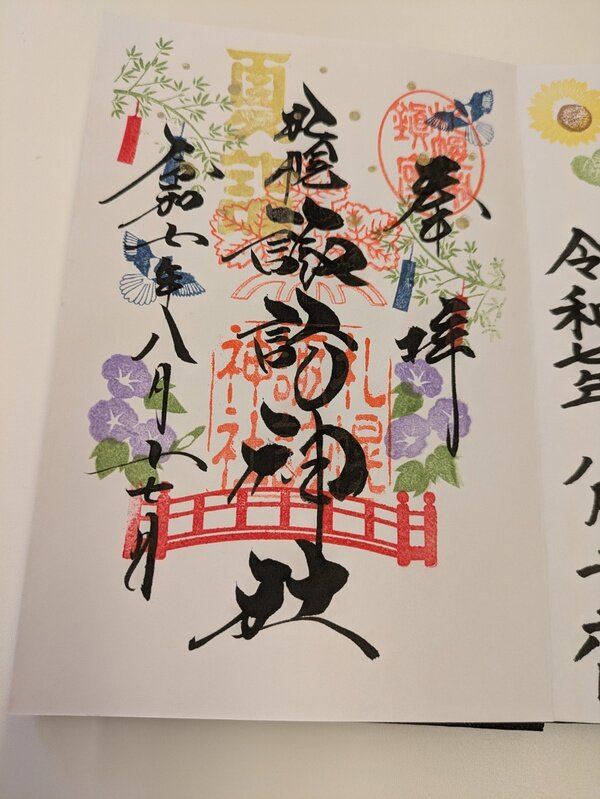 令和七年
八月十六日
奉拝
札幌
諏訪神社
令和七年八月十七日
夏詣
札幌
諏訪
神社